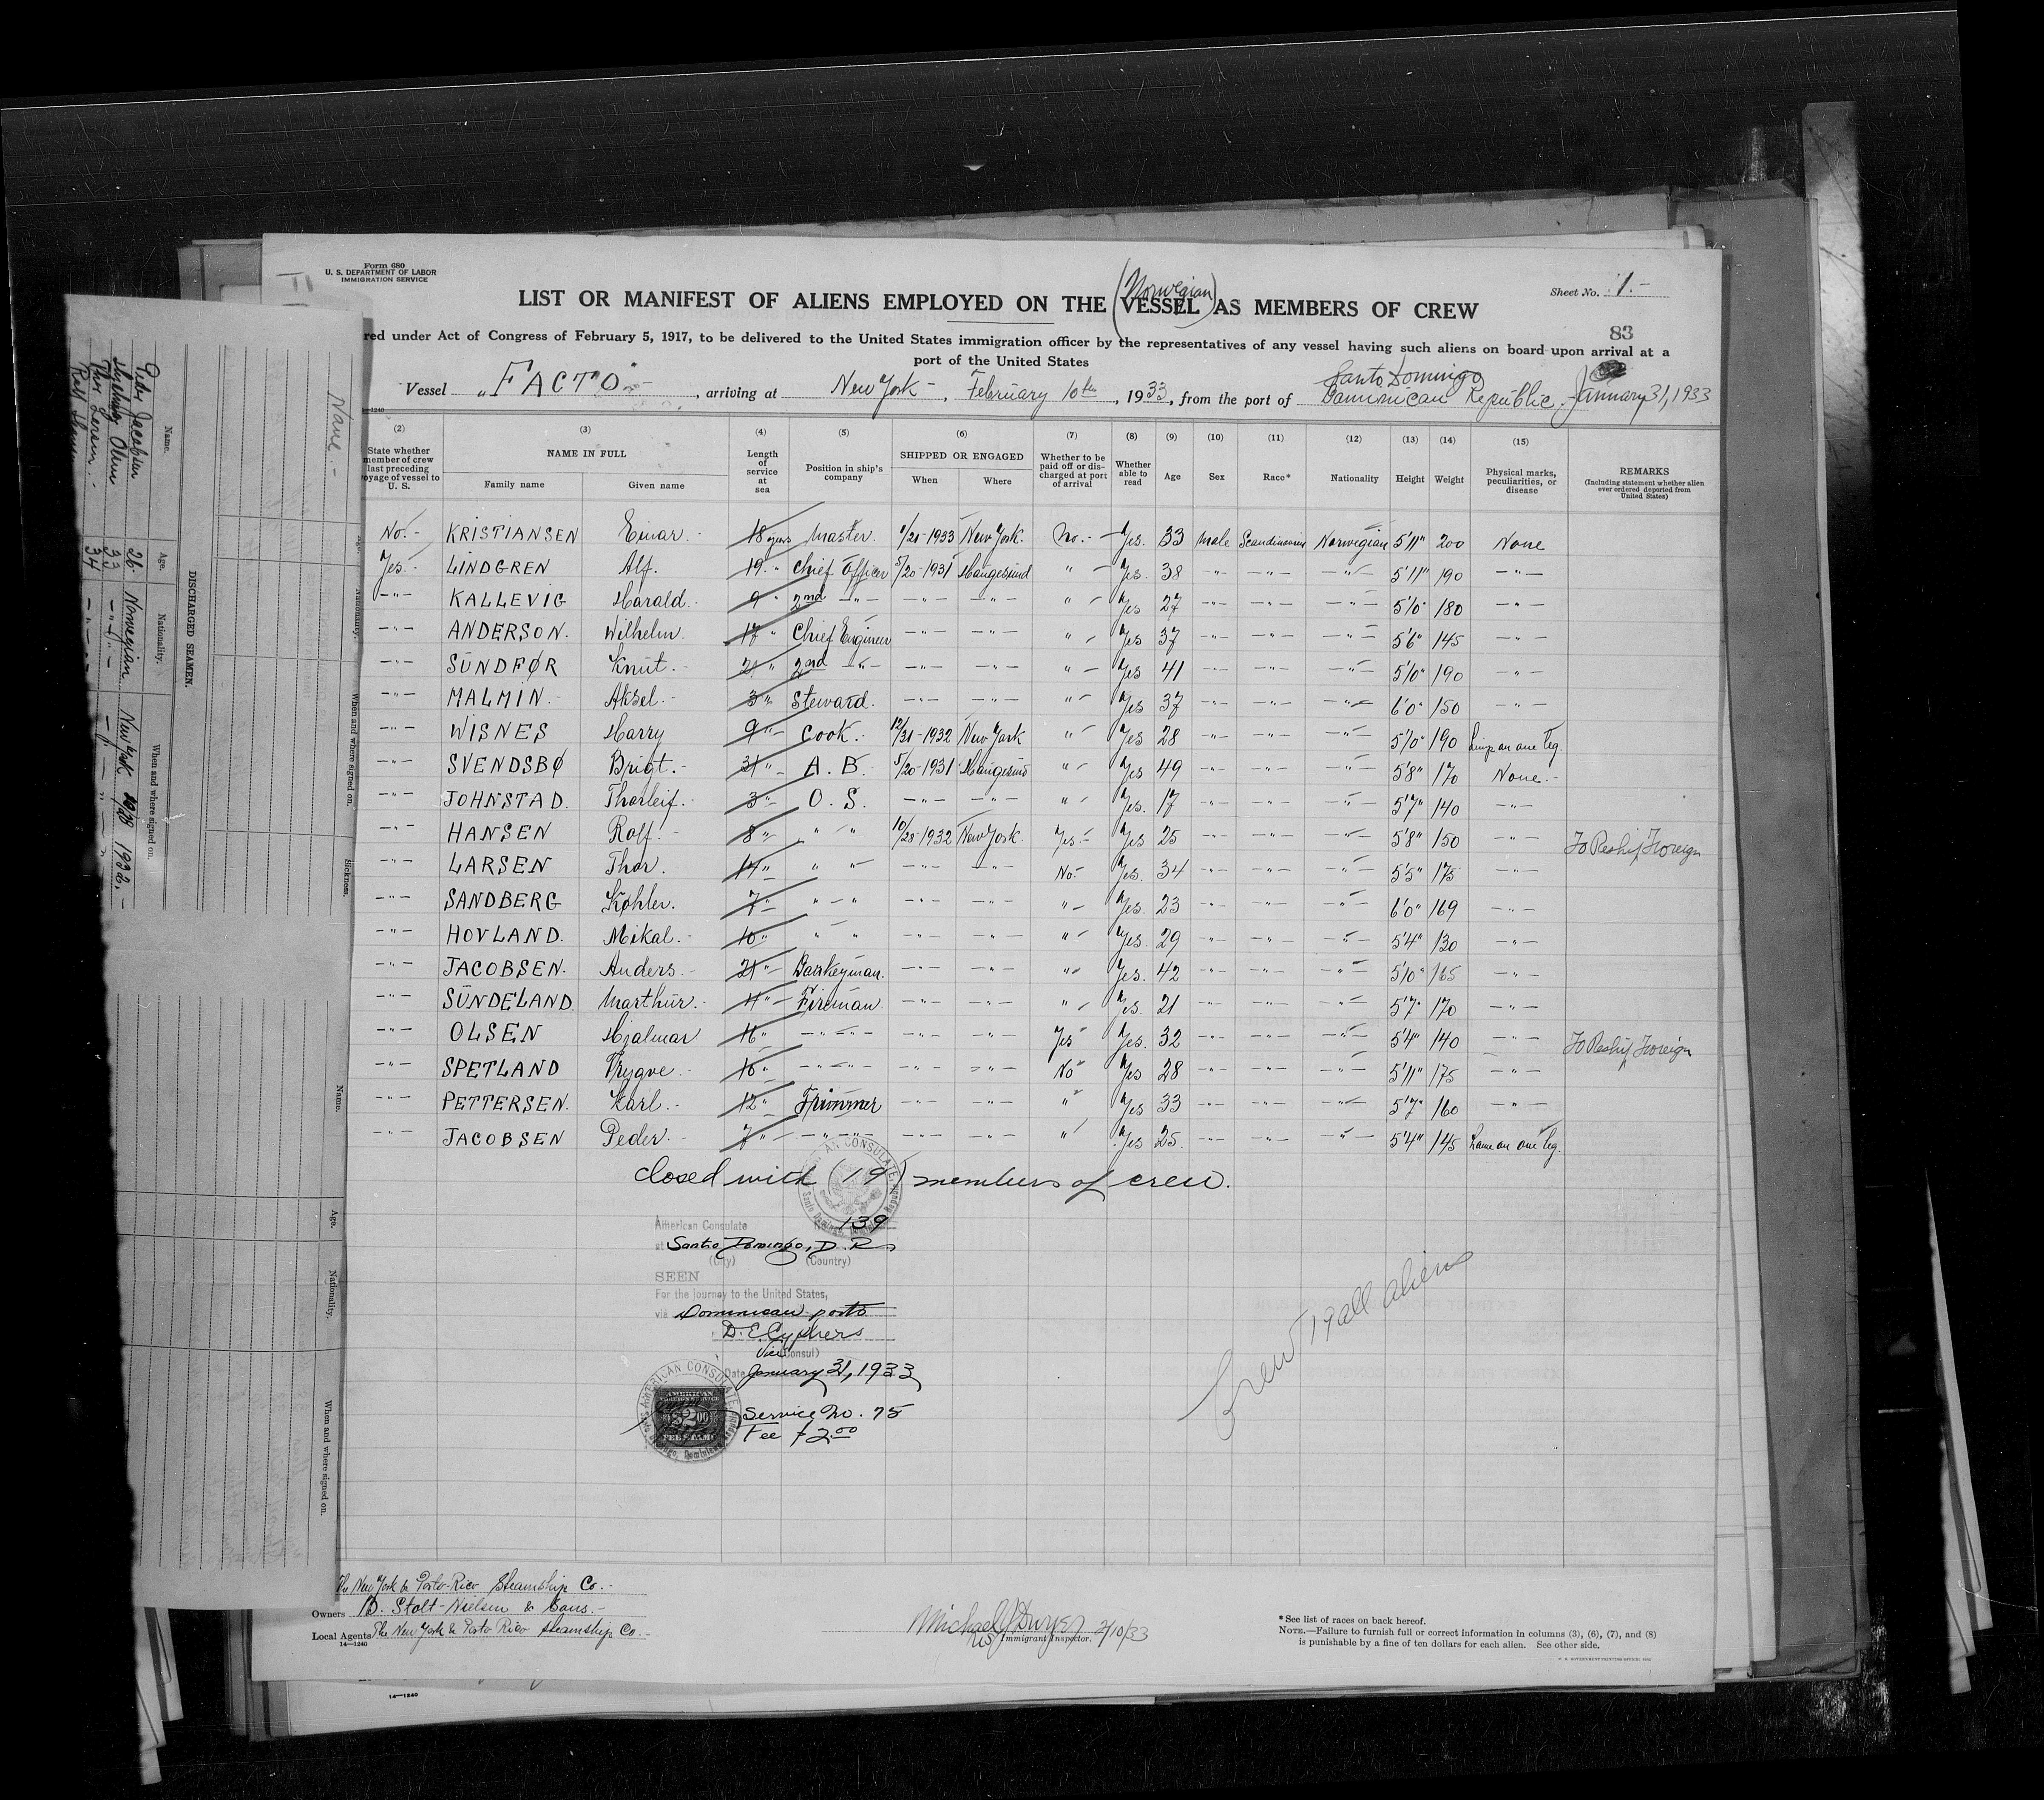 Form 680
U. S. DEPARTMENT OF LABOR
IMMIGRATION SERVICE
Sheet No. 1.-
(Norwegian)
LIST OR MANIFEST OF ALIENS EMPLOYED ON THE VESSEL AS MEMBERS OF CREW
83
red under Act of Congress of February 5, 1917, to be delivered to the United States immigration officer by the representatives of any vessel having such aliens on board upon arrival at a
port of the United States
Vessel "FACTO"-, arriving at New York-, February 10th, 1933, from the port of Santo Domingo Dominican Republic, January 31, 1933
14-1240
(2) (3) (4) (5) (6) (7) (8) (9) (10) (11) (12) (13) (14) (15)
State whether member of crew last preceding voyage of vessel to U. S. | NAME IN FULL Family name Given name | Length of service at sea | Position in ship's company | SHIPPED OR ENGAGED When Where | Whether to be paid off or discharged at port of arrival | Whether able to read | Age | Sex | Race* | Nationality | Height | Weight | Physical marks, peculiarities, or disease | REMARKS (Including statement whether alien ever ordered deported from United States)
No.- KRISTIANSEN Einar.- 18 years Master. 1/21-1933 New York. No.- Yes. 33 Male Scandinavian Norwegian 5'11" 200 None
Yes.- LINDGREN Alf. 19 " Chief Officer 5/20-1931 Haugesund " - Yes. 38 -"- -"- -"- 5'11" 190 -"-
-"- KALLEVIG Harald.- 9 " 2nd -"- -"- -"- " - Yes 27 -"- -"- -"- 5'10" 180 -"-
-"- ANDERSON. Wilhelm. 17 " Chief Engineer -"- -"- " - Yes 37 -"- -"- -"- 5'6" 145 -"-
-"- SUNDFØR Knut.- 21 " 2nd -"- -"- -"- " - Yes 41 -"- -"- -"- 5'10" 190 -"-
-"- MALMIN. Aksel.- 3 " Steward. -"- -"- " - Yes 37 -"- -"- -"- 6'0" 150 -"-
-"- WISNES Harry 9 " Cook.- 12/31-1932 New York " - Yes 28 -"- -"- -"- 5'10" 190 Limp on one leg.
-"- SVENDSBØ Brigt.- 31 " A. B. 5/20-1931 Haugesund " - Yes 49 -"- -"- -"- 5'8" 170 None.-
-"- JOHNSTAD. Thorleif.- 3 " O. S. -"- -"- " - Yes. 17 -"- -"- -"- 5'7" 140 -"-
-"- HANSEN Rolf.- 8 " " " 10/28-1932 New York. Yes.- Yes 25 -"- -"- -"- 5'8" 150 -"- To Reship Foreign
-"- LARSEN Thor. 14 " " " -"- -"- No.- Yes. 34 -"- -"- -"- 5'5" 175 -"-
-"- SANDBERG Køhler. 7 " " " -"- -"- " - Yes. 23 -"- -"- -"- 6'0" 169 -"-
-"- HOVLAND. Mikal.- 10 " " " -"- -"- " - Yes. 29 -"- -"- -"- 5'4" 130 -"-
-"- JACOBSEN. Anders.- 21 " Donkeyman. -"- -"- " - Yes. 42 -"- -"- -"- 5'10" 165 -"-
-"- SUNDELAND Marthur.- 4 " Fireman -"- -"- " - Yes. 21 -"- -"- -"- 5'7" 170 -"-
-"- OLSEN Hjalmar 16 " -"- -"- -"- Yes Yes. 32 -"- -"- -"- 5'4" 140 -"- To Reship Foreign
-"- SPETLAND Trygve.- 10 " -"- -"- -"- No Yes 28 -"- -"- -"- 5'11" 175 -"-
-"- PETTERSEN. Karl.- 12 " Trimmer -"- -"- " Yes 33 -"- -"- -"- 5'7" 160 -"-
-"- JACOBSEN Peder.- 7 " -"- -"- -"- " Yes 25. -"- -"- -"- 5'4" 145 Lame on one leg.
Closed with (19) members of crew.
American Consulate No. 139
at Santo Domingo, D. R.
(City) (Country)
SEEN
For the journey to the United States,
via Dominican ports
D. E. Cyphers
Vice Consul)
Date January 31, 1933
AMERICAN CONSULATE
AMERICAN
FOREIGN SERVICE
$2.00
FEE STAMP
Service No. 75
Fee $2.00
Crew 19 all aliens
The New York & Porto-Rico Steamship Co.-
Owners B. Stolt-Nielsen & Sons.-
Local Agents The New York & Porto Rico Steamship Co.-
14-1240
Michael J Dwyer 2/10/33
US Immigrant Inspector.
*See list of races on back hereof.
NOTE.—Failure to furnish full or correct information in columns (3), (6), (7), and (8)
is punishable by a fine of ten dollars for each alien. See other side.
U. S. GOVERNMENT PRINTING OFFICE
14-1240
None.-
Nationality.
When and where signed on.
Sickness.
DISCHARGED SEAMEN.
Name. Age. Nationality. When and where signed on.
Peder Jacobsen 26. Norwegian New York 1932.-
Olsen 33 -"- -"-
Thor Larsen.- 34 -"- -"-
Name. Age. Nationality. When and where signed on.